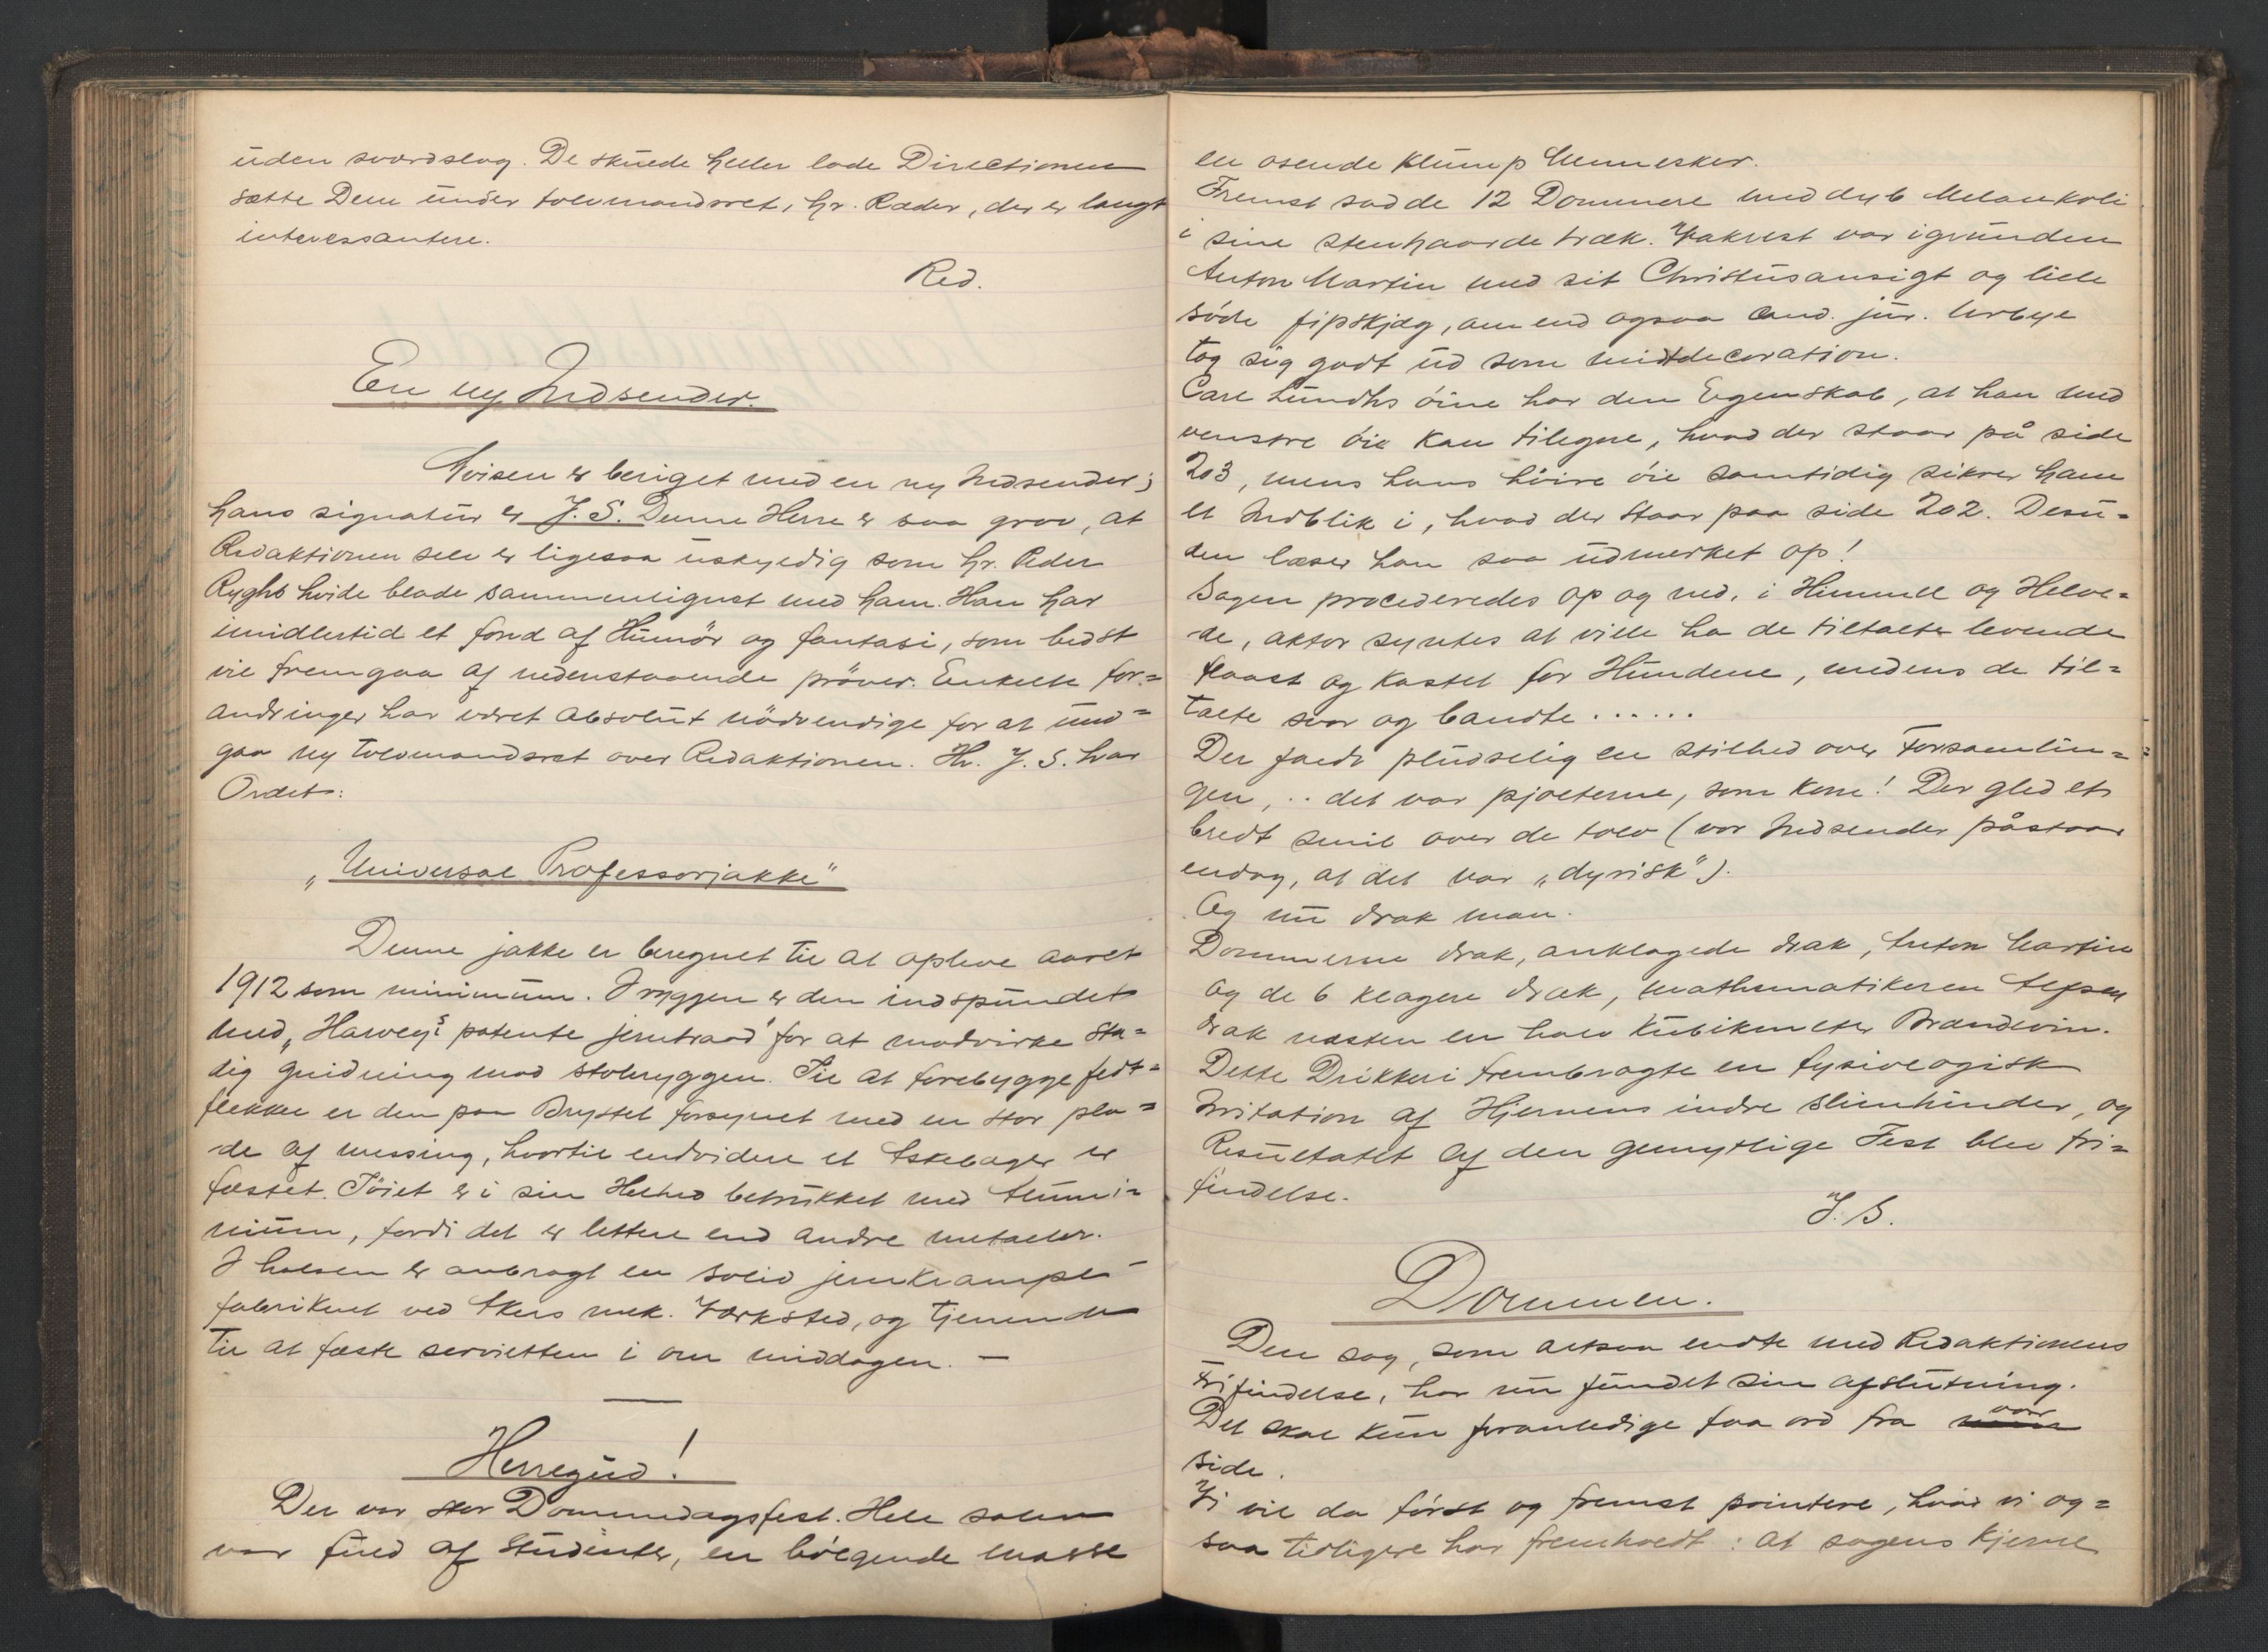 uden sværdslag. De skulde heller lade Directionen
sætte Dem under tolvmandsret, hr. Ræder, der er langt
interessantere.
Red.
En ny Indsender.
Avisen er beriget med en ny Indsender;
hans signatur er J. S. Denne Herre er saa grov, at
Redaktionen selv er ligesaa uskyldig som hr. Peder
Ryghs hvide blade sammenlignet med ham. Han har
imidlertid et fond af Humör og fantasi, som bedst
vil fremgaa af nedenstaaende pröver. Enkelte for=
andringer har været absolut nödvendige for at und=
gaa ny tolvmandsret over Redaktionen. Hr. J. S. har
Ordet:
„Universal Professorjakke"
Denne jakke er beregnet til at opleve aaret
1912 som minimum. I ryggen er den indspundet
med „Harvey's patente jerntraad" for at modvirke sta=
dig gnidning mod stolryggen. Til at forebygge fedt=
flekker er den paa Brystet forsynet med en stor pla=
de af messing, hvortil endvidere et Askebæger er
fæstet. Töiet er i sin Helhed betrukket med Alumi=
nium, fordi det er lettere end andre metaller.
I halsen er anbragt en solid jernkrampe
fabrikeret ved Akers mek. Værksted, og tjenende
til at fæste servietten i om middagen. —
Herregud!
Der var stor Dommedagsfest. Hele salen
var fuld af Studenter, en bölgende masse
en osende klump Mennesker.
Fremst sad de 12 Dommere med dyb Melankoli
i sine stenhaarde træk. Vakrest var igrunden
Anton Martin med sit Christusansigt og lille
söde fipskjæg, om end ogsaa cand. jur. Urbye
tog sig godt ud som midtdecoration.
Carl Lundhs öine har den Egenskab, at han med
venstre öie kan tilegne, hvad der staar på side
203, mens hans höire öie samtidig sikrer ham
et Indblik i, hvad der staar paa side 202. Desu=
den læser han saa udmerket op!
Sagen procederedes op og ned, i Himmel og Helve=
de, aktor syntes at ville ha de tiltalte levende
flaaet og kastet for Hundene, medens de til=
talte svor og bandte ......
Der faldt pludselig en stilhed over Forsamlin=
gen, .. det var pjolterne, som kom! Der gled et
bredt smil over de tolv (vor Indsender påstaar
endog, at det var „dyrisk").
Og nu drak man.
Dommerne drak, anklagede drak, Anton Martin
og de 6 klagere drak, mathematikeren Alfsen
drak næsten en halv kubikmeter Brændevin.
Dette Drikkeri frembragte en fysiologisk
Irritation af Hjernens indre slimhinder, og
Resultatet af den gemytlige Fest blev fri=
findelse.
J. S.
Dommen.
Den sag, som altsaa endte med Redaktionens
Frifindelse, har nu fundet sin afslutning.
Det skal kun foranledige faa ord fra vor
side.
Vi vil da først og fremst pointere, hvad vi og=
saa tidligere har fremhævet: at sagens kjerne